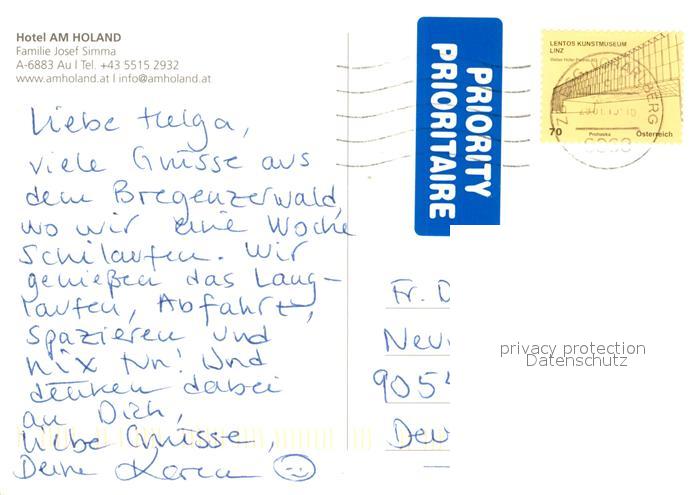 Hotel AM HOLAND
Familie Josef Simma
A-6883 Au I Tel. +43 5515 2932
www.amholand.at I info@amholand.at
Liebe Helga,
viele Grüsse aus
dem Bregenzerwald,
wo wir eine Woche
Schilaufen. Wir
genießen das Lang-
laufen, Abfahrt,
spazieren und
nix tun! Und
denken dabei
an Dich,
liebe Grüsse,
Deine Karen
PRIORITY
PRIORITAIRE
LENTOS KUNSTMUSEUM
LINZ
70
Prohaska
Österreich
Fr. D
Neu
9054
Deu
privacy protection
Datenschutz